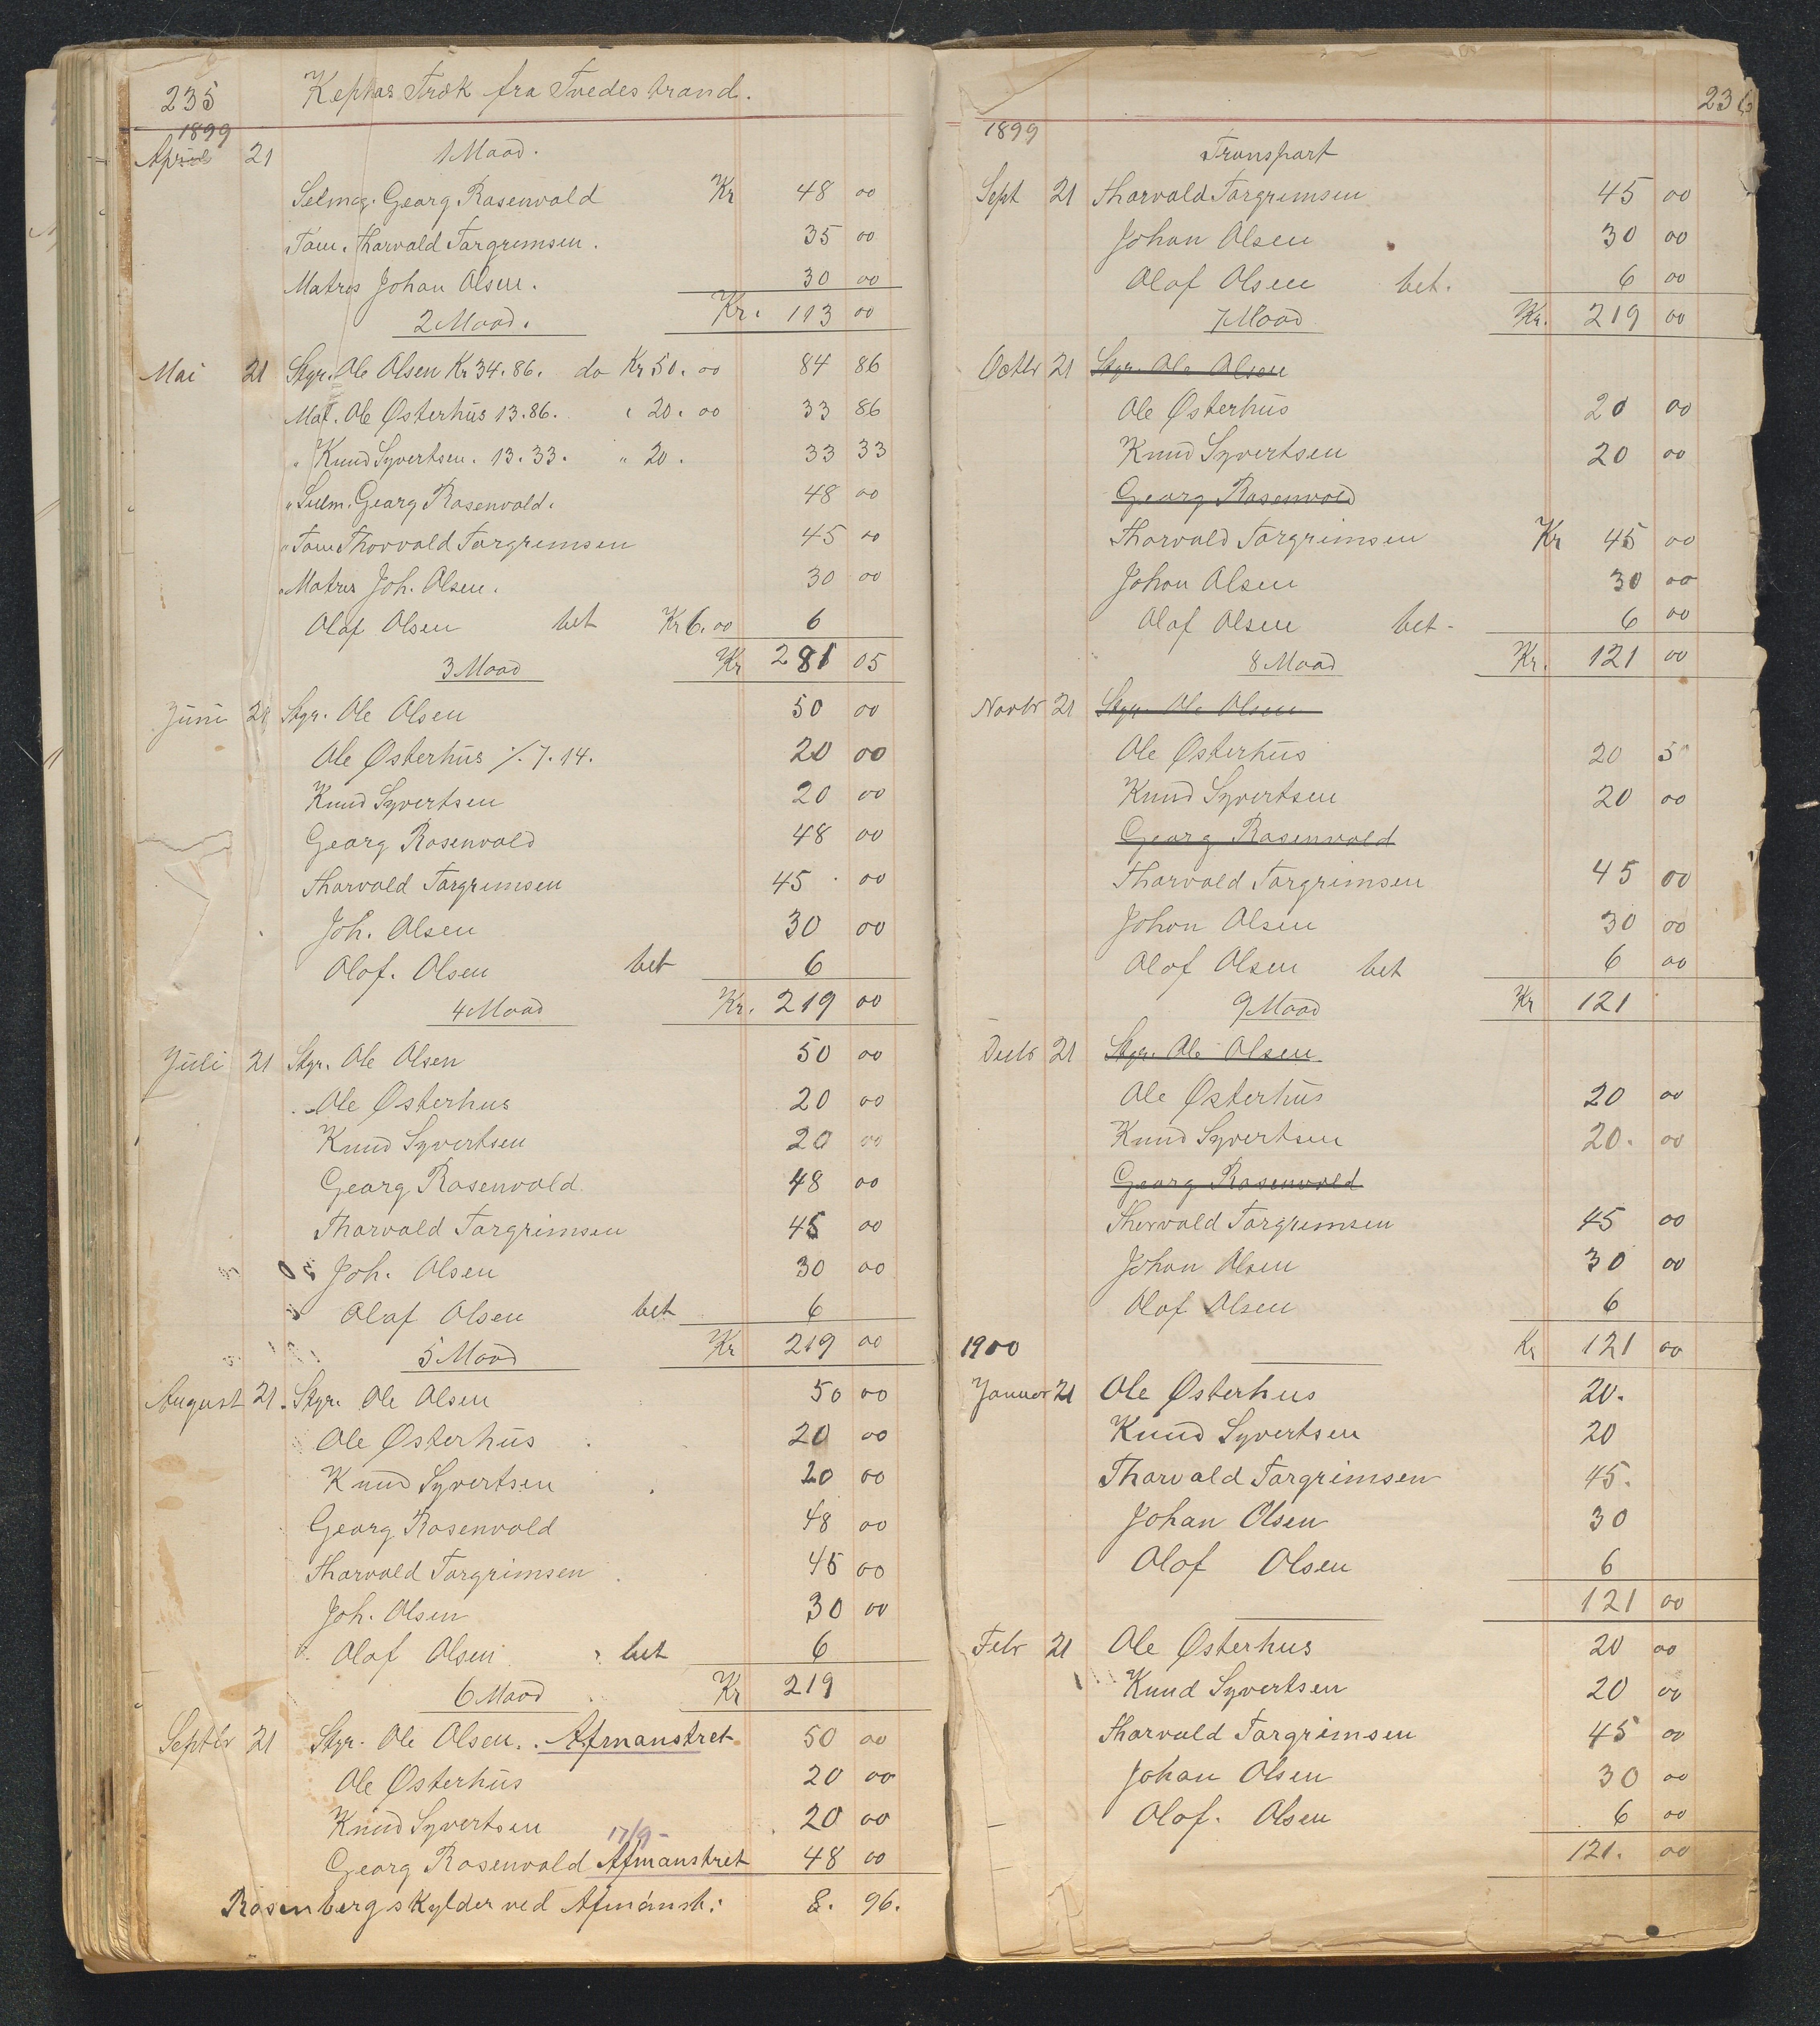 235 Kephas Træk fra Tvedestrand.
1899
April 21 1 Maad.
Selmag. Georg Rosenvold Kr 48 00
Tøm. Thorvald Torgrimsen. 35 00
Matros Johan Olsen. 30 00
2 Maad. Kr. 113 00
Mai 21 Styr. Ole Olsen Kr 34.86. do Kr 50.00 84 86
Mat. Ole Østerhus 13.86. " 20.00 33 86
" Knud Syvertsen. 13.33. " 20. 33 33
" Seilm. Georg Rosenvold. 48 00
" Tøm Thorvald Torgrimsen 45 00
" Matros Joh. Olsen. 30 00
Olaf Olsen bet Kr 6.00 6
3 Maad Kr 281 05
Juni 21 Styr. Ole Olsen 50 00
Ole Østerhus ./. 7.14. 20 00
Knud Syvertsen 20 00
Georg Rosenvold 48 00
Thorvald Torgrimsen 45 00
Joh. Olsen 30 00
Olof. Olsen bet 6
4 Maad Kr. 219 00
Juli 21 Styr. Ole Olsen 50 00
Ole Østerhus 20 00
Knud Syvertsen 20 00
Georg Rosenvold. 48 00
Thorvald Torgrimsen 45 00
Joh. Olsen 30 00
Olaf Olsen bet 6
5 Maad Kr 219 00
August 21. Styr. Ole Olsen 50 00
Ole Østerhus 20 00
Knud Syvertsen 20 00
Georg Rosenvold 48 00
Thorvald Torgrimsen 45 00
Joh. Olsen 30 00
Olaf Olsen bet 6
6 Maad Kr 219
Septbr 21 Styr. Ole Olsen. Afmønstret 50 00
Ole Østerhus 20 00
Knud Syvertsen 20 00
17/9-
Georg Rosenvold Afmønstret 48 00
Rosenberg skylder ved Afmønst: 8. 96.
236
1899
Transport
Sept 21 Thorvald Torgrimsen 45 00
Johan Olsen 30 00
Olaf Olsen bet. 6 00
7 Maad Kr. 219 00
Octbr 21 Styr. Ole Olsen
Ole Østerhus 20 00
Knud Syvertsen 20 00
Georg Rosenvold
Thorvald Torgrimsen Kr 45 00
Johan Olsen 30 00
Olaf Olsen bet- 6 00
8 Maad Kr. 121 00
Novbr 21 Styr. Ole Olsen
Ole Østerhus 20
Knud Syvertsen 20 00
Georg Rosenvold
Thorvald Torgrimsen 45 00
Johan Olsen 30 00
Olaf Olsen bet 6 00
9 Maad Kr 121
Decbr 21 Styr. Ole Olsen
Ole Østerhus 20 00
Knud Syvertsen 20. 00
Georg Rosenvold
Thorvald Torgrimsen 45 00
Johan Olsen 30 00
Olaf Olsen 6
1900 Kr 121 00
Januar 21 Ole Østerhus 20.
Knud Syvertsen 20
Thorvald Torgrimsen 45.
Johan Olsen 30
Olof Olsen 6
121 00
Febr 21 Ole Østerhus 20 00
Knud Syvertsen 20 00
Thorvald Torgrimsen 45 00
Johan Olsen 30 00
Olof. Olsen 6 00
121. 00